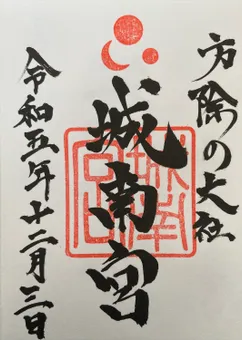 方除の大社
城南宮
令和五年十二月三日